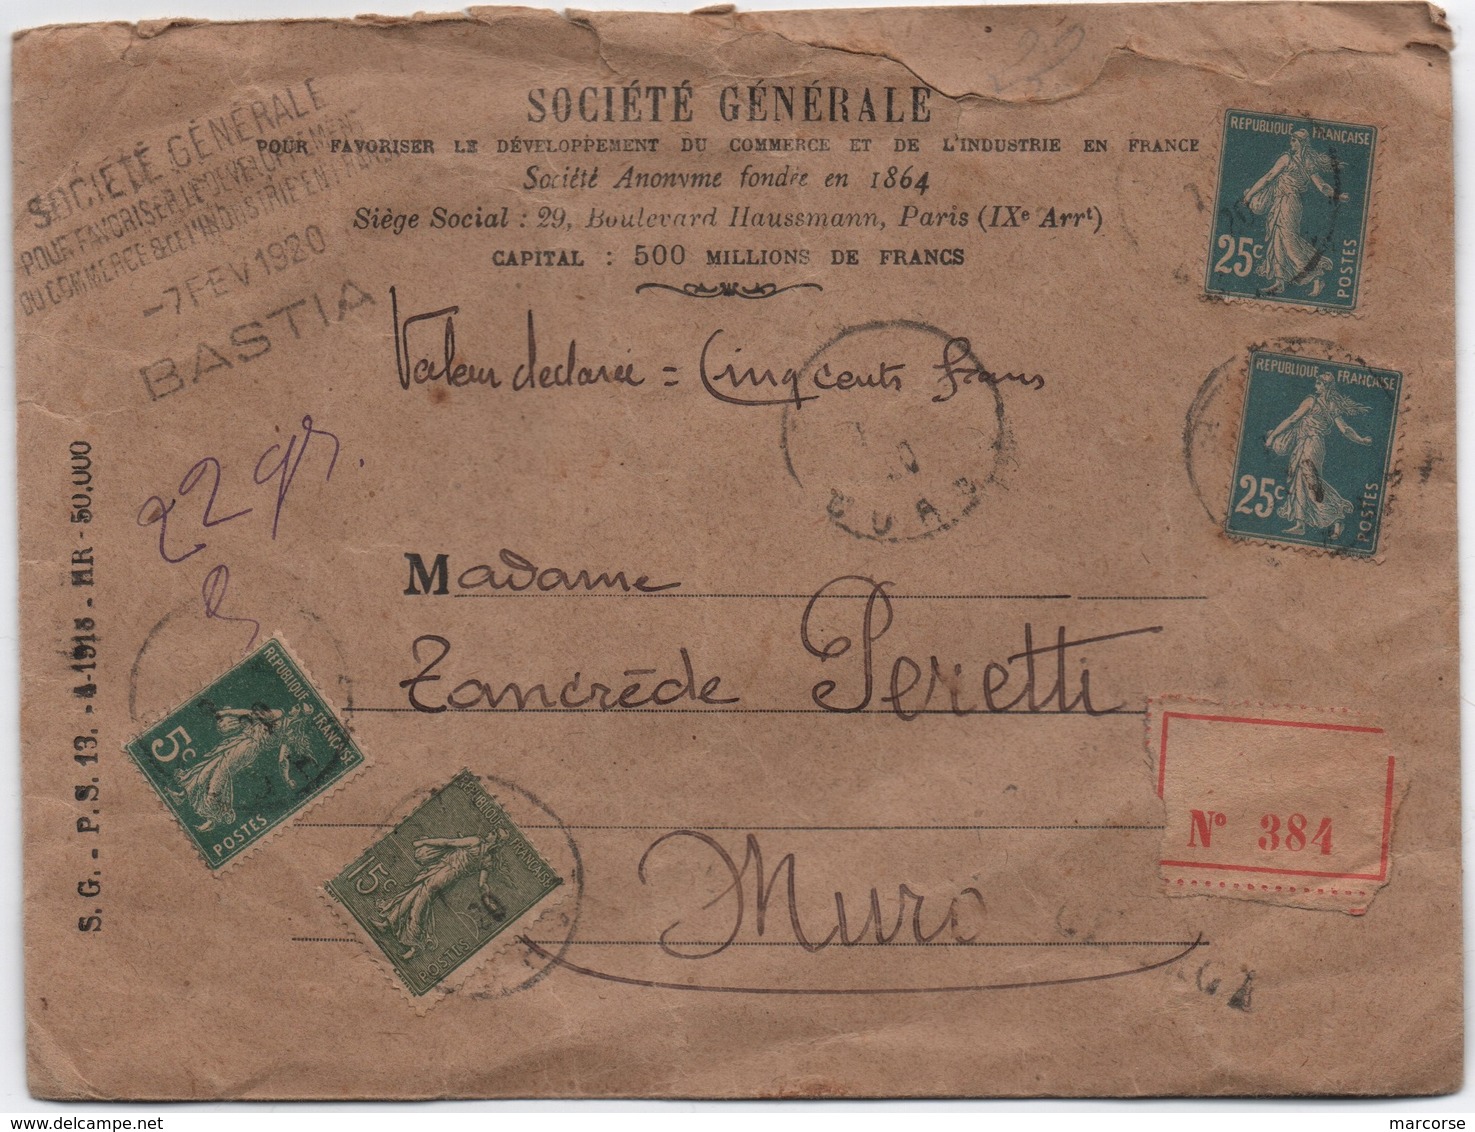 SOCIÉTÉ GÉNÉRALE
POUR FAVORISER LE DÉVELOPPEMENT DU COMMERCE ET DE L'INDUSTRIE EN FRANCE
Société Anonyme fondée en 1864
Siège Social : 29, Boulevard Haussmann, Paris (IXe Arrt)
CAPITAL : 500 MILLIONS DE FRANCS
SOCIÉTÉ GÉNÉRALE
POUR FAVORISER LE DÉVELOPPEMENT
DU COMMERCE & DE L'INDUSTRIE EN FRANCE
-7 FEV 1920
BASTIA
REPUBLIQUE FRANÇAISE
25c
POSTES
REPUBLIQUE FRANÇAISE
25c
POSTES
Valeur declarée = Cinq cents francs
22 gr.
S. G. - P. S. 13. - HR - 50.000
Madame
Tancrède Peretti
Muro
REPUBLIQUE FRANÇAISE
5c
POSTES
REPUBLIQUE FRANÇAISE
15c
POSTES
20
No 384
marcorse